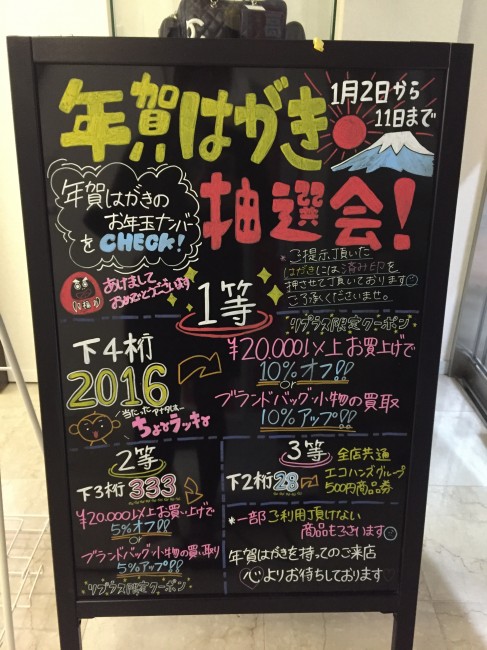 年賀はがき
1月2日から
11日まで
抽選会!
年賀はがきの
お年玉ナンバー
をCHECK!
ご提示頂いた
はがきには済み印を
押させて頂いております
ご了承くださいませ。
あけまして
おめでとうございます
1等
リプラス限定クーポン
下4桁
2016
当たったアナタは…
ちょ〜ラッキー
¥20.000以上お買上げで
10%オフ!!
or
ブランドバッグ・小物の買取
10%アップ!!
2等
下3桁 333
¥20.000以上お買い上げで
5%オフ!!
or
ブランドバッグ・小物の買い取り
5%アップ!!
リプラス限定クーポン
3等
下2桁 28
全店共通
エコハンズグループ
500円商品券
*一部ご利用頂けない
商品もございます
年賀はがきを持ってのご来店
心よりお待ちしております